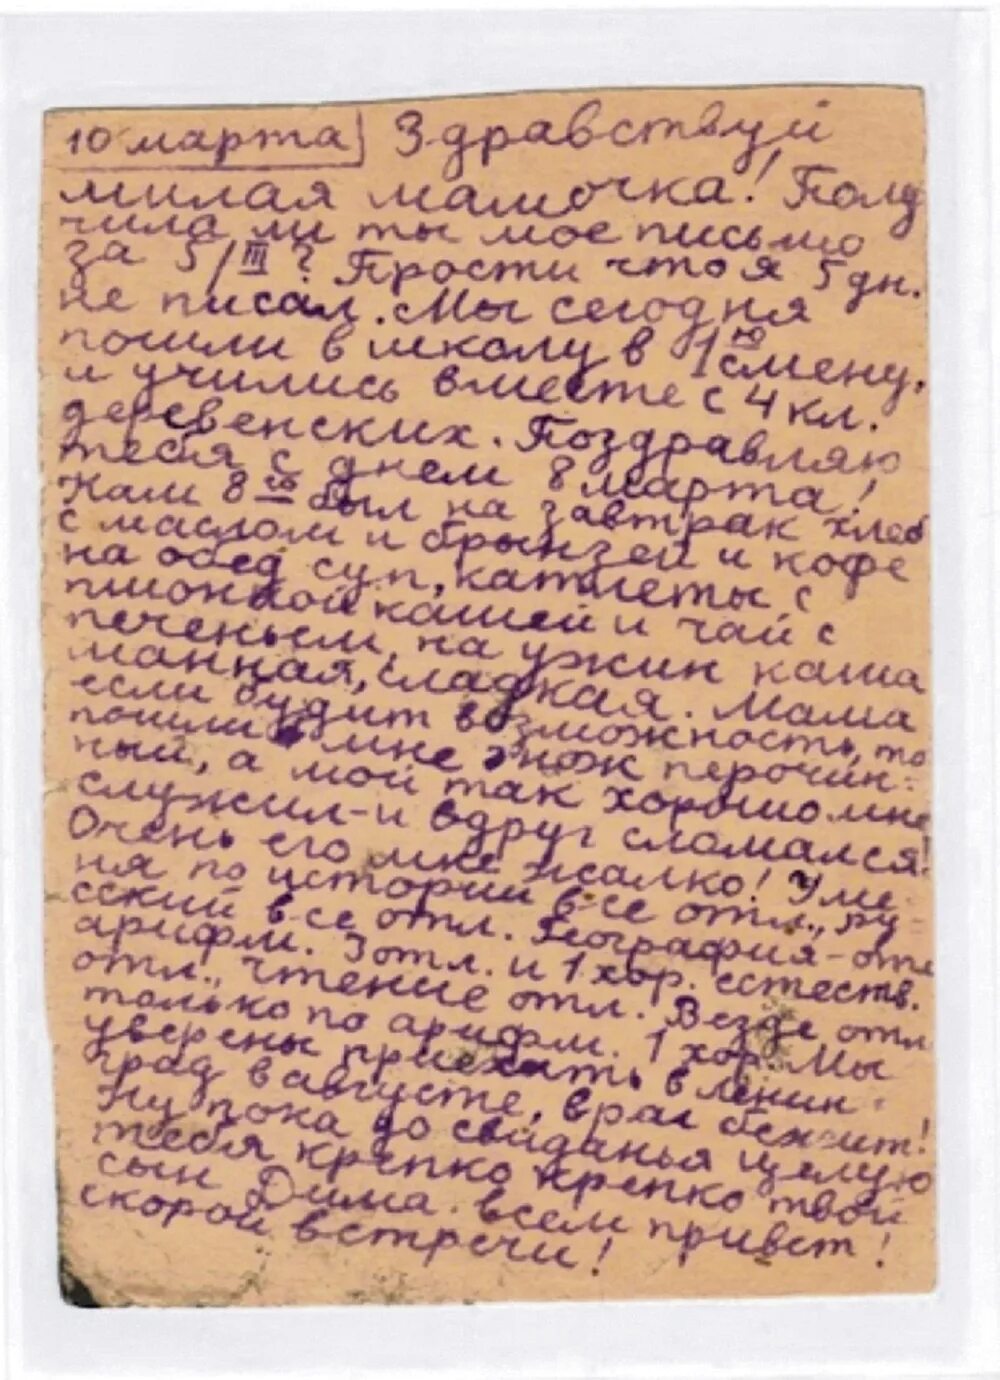 10 марта Здравствуй
милая мамочка! Полу
чила ли ты мое письмо
за 5/III? Прости что я 5 дн.
не писал. Мы сегодня
пошли в школу в 1ю смену.
и учились вместе с 4 кл.
деревенских. Поздравляю
тебя с днем 8 марта!
Нам 8го был на завтрак хлеб
с маслом и брынзей и кофе
на обед суп, катлеты с
пшонной кашей и чай с
печеньем, на ужин каша
манная, сладкая. Мама
если будит возможность, то
пошли мне нож перочин-
ный, а мой так хорошо мне
служил-и вдруг сломался!
Очень его мне жалко! У ме-
ня по истории все отл., ру-
сский все отл. География-отл
арифм. 3 отл. и 1 хор. естеств.
отл., чтение отл. Везде отл
только по арифм. 1 хор. Мы
уверены приехать в Ленин-
град в августе, враг бежит!
Ну пока до свиданья целую
тебя крепко крепко твой
сын Дима. всем привет!
скорой встречи!